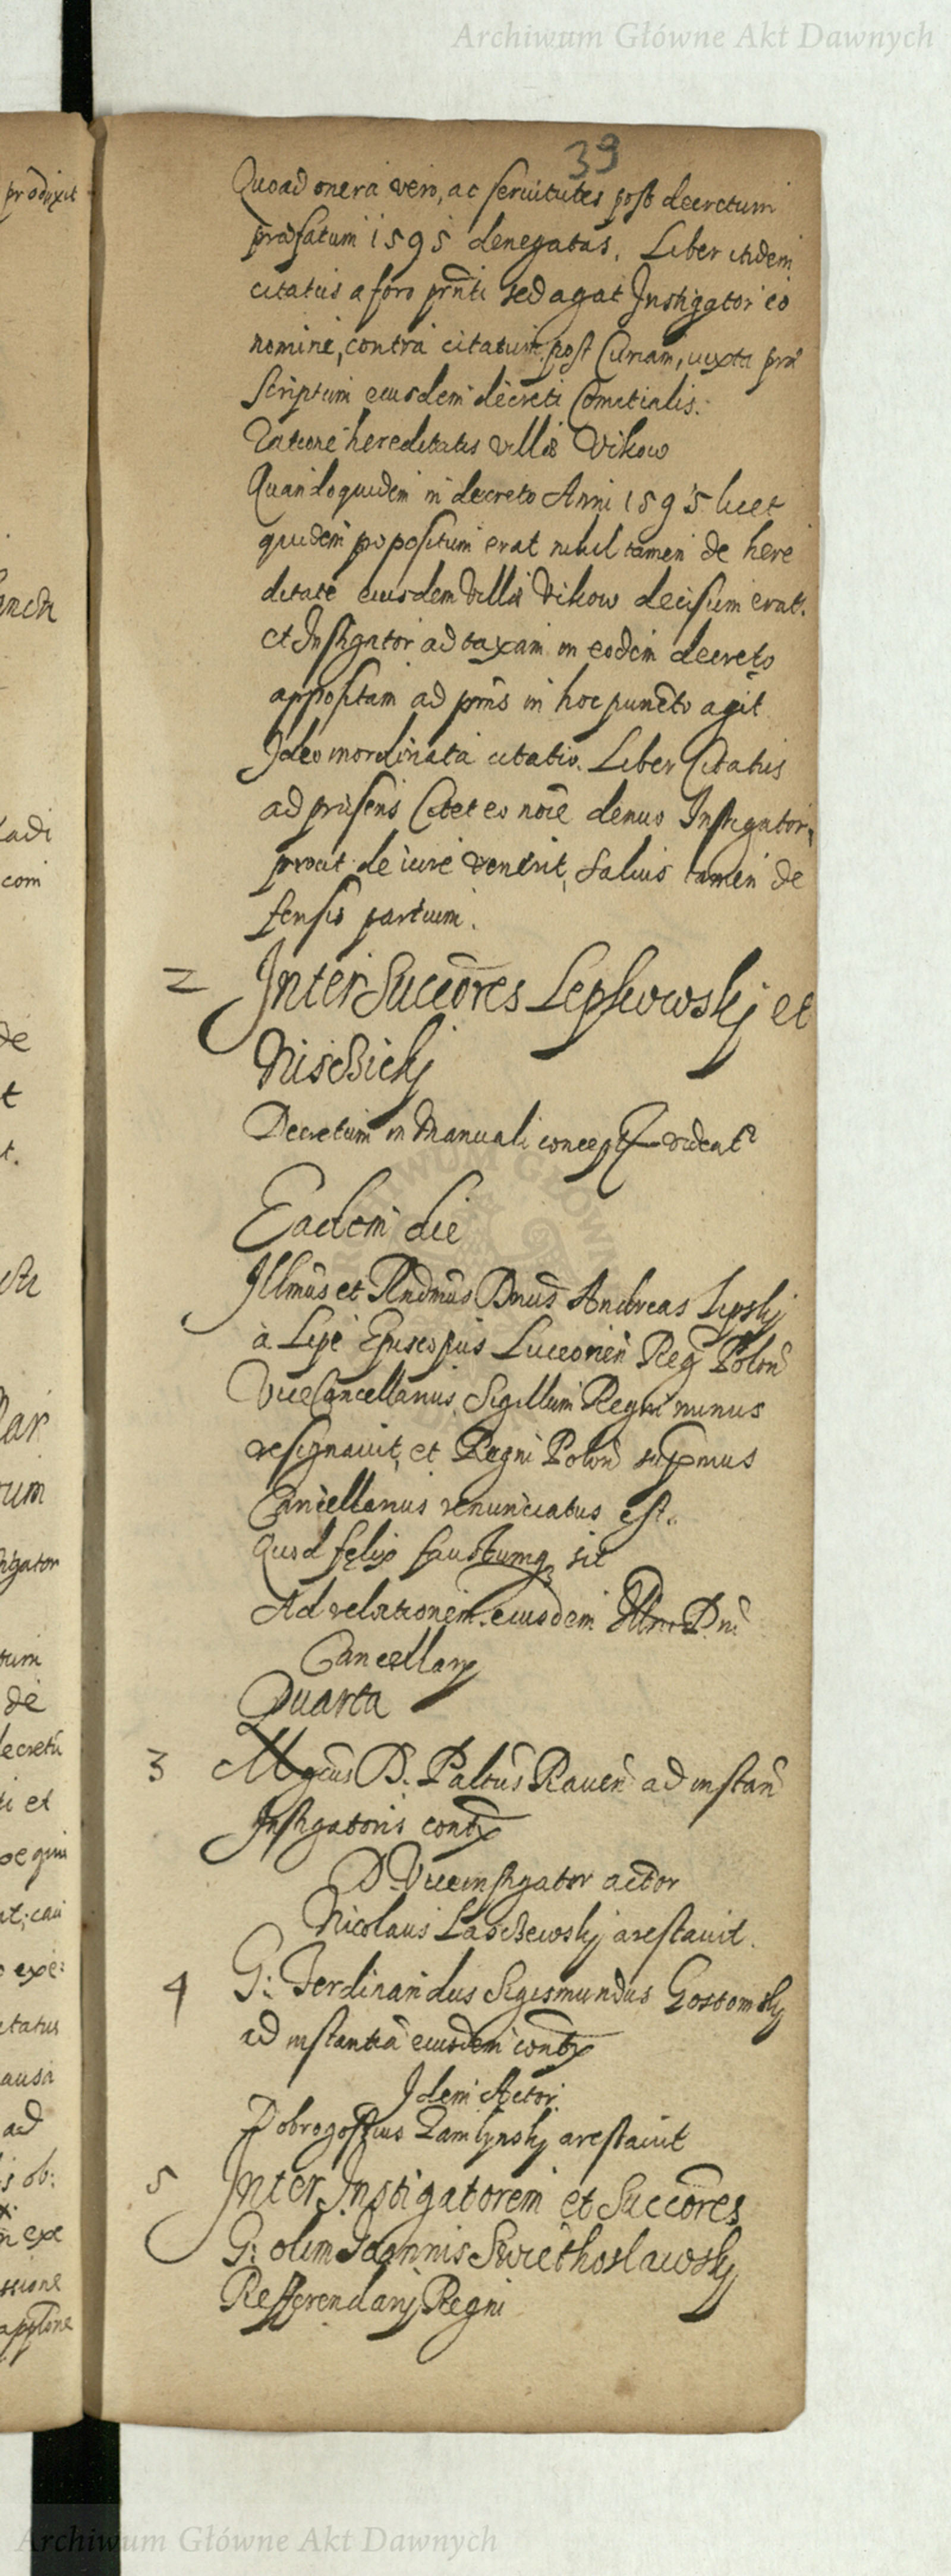 Archiwum Główne Akt Dawnych
39
Quoad onera vero, ac servitutes post decretum
præfatum 1595 denegatas. Liber itidem
citatus a foro prñti sed agat Instigator eo
nomine, contra citatum post Curiam, iuxta præ
scriptum eiusdem decreti Comitialis.
Ratione hereditatis villæ Vikow
Quandoquidem in decreto Anni 1595 licet
quidem propositum erat nihil tamen de here
ditate eiusdem Villæ Vikow decisum erat.
et Instigator ad taxam in eodem decreto
appositam ad prñs in hoc puncto agit
Ideo inordinata citatio. Liber Citatus
ad præsens Citet eo noĩe denuo Instigator,
prout de iure venerit, Salvis tamen de
fensis partium.
2 Inter Succõres Lepkowskj et
Nisczickj
Decretum in Manuali concept videat
Eadem die
Illmus et Rndmus Dnus Andreas Lipskj
à Lipe Episcopus Luceorien Reg Polon
ViceCancellarius, Sigillum Regni minus
resignavit, et Regni Polon supmus
Cancellarius renunciatus est.
Quod felix faustumq sit
Ad relationem eiusdem Illmi Dni
Cancellarij
Quarta
3 Mgcus D. Paltus Raven ad instan
Instigatoris contra
D. Viceinstigator actor
Nicolaus Lasczewskj arestavit.
4 G: Ferdinandus Sigismundus Gostomskj
ad instantiã eiusdem contra
Idem Actor.
Dobrogostius Zamlynskj arestavit
5 Inter Instigatorem et Succõres
G: olim Joannis Swiethoslawskj
Refferendarij Regni
prodixit
ladi
com
de
t
t.
rum
de
ti et
citatus
causa
ad
s ob:
n exe
Archiwum Główne Akt Dawnych